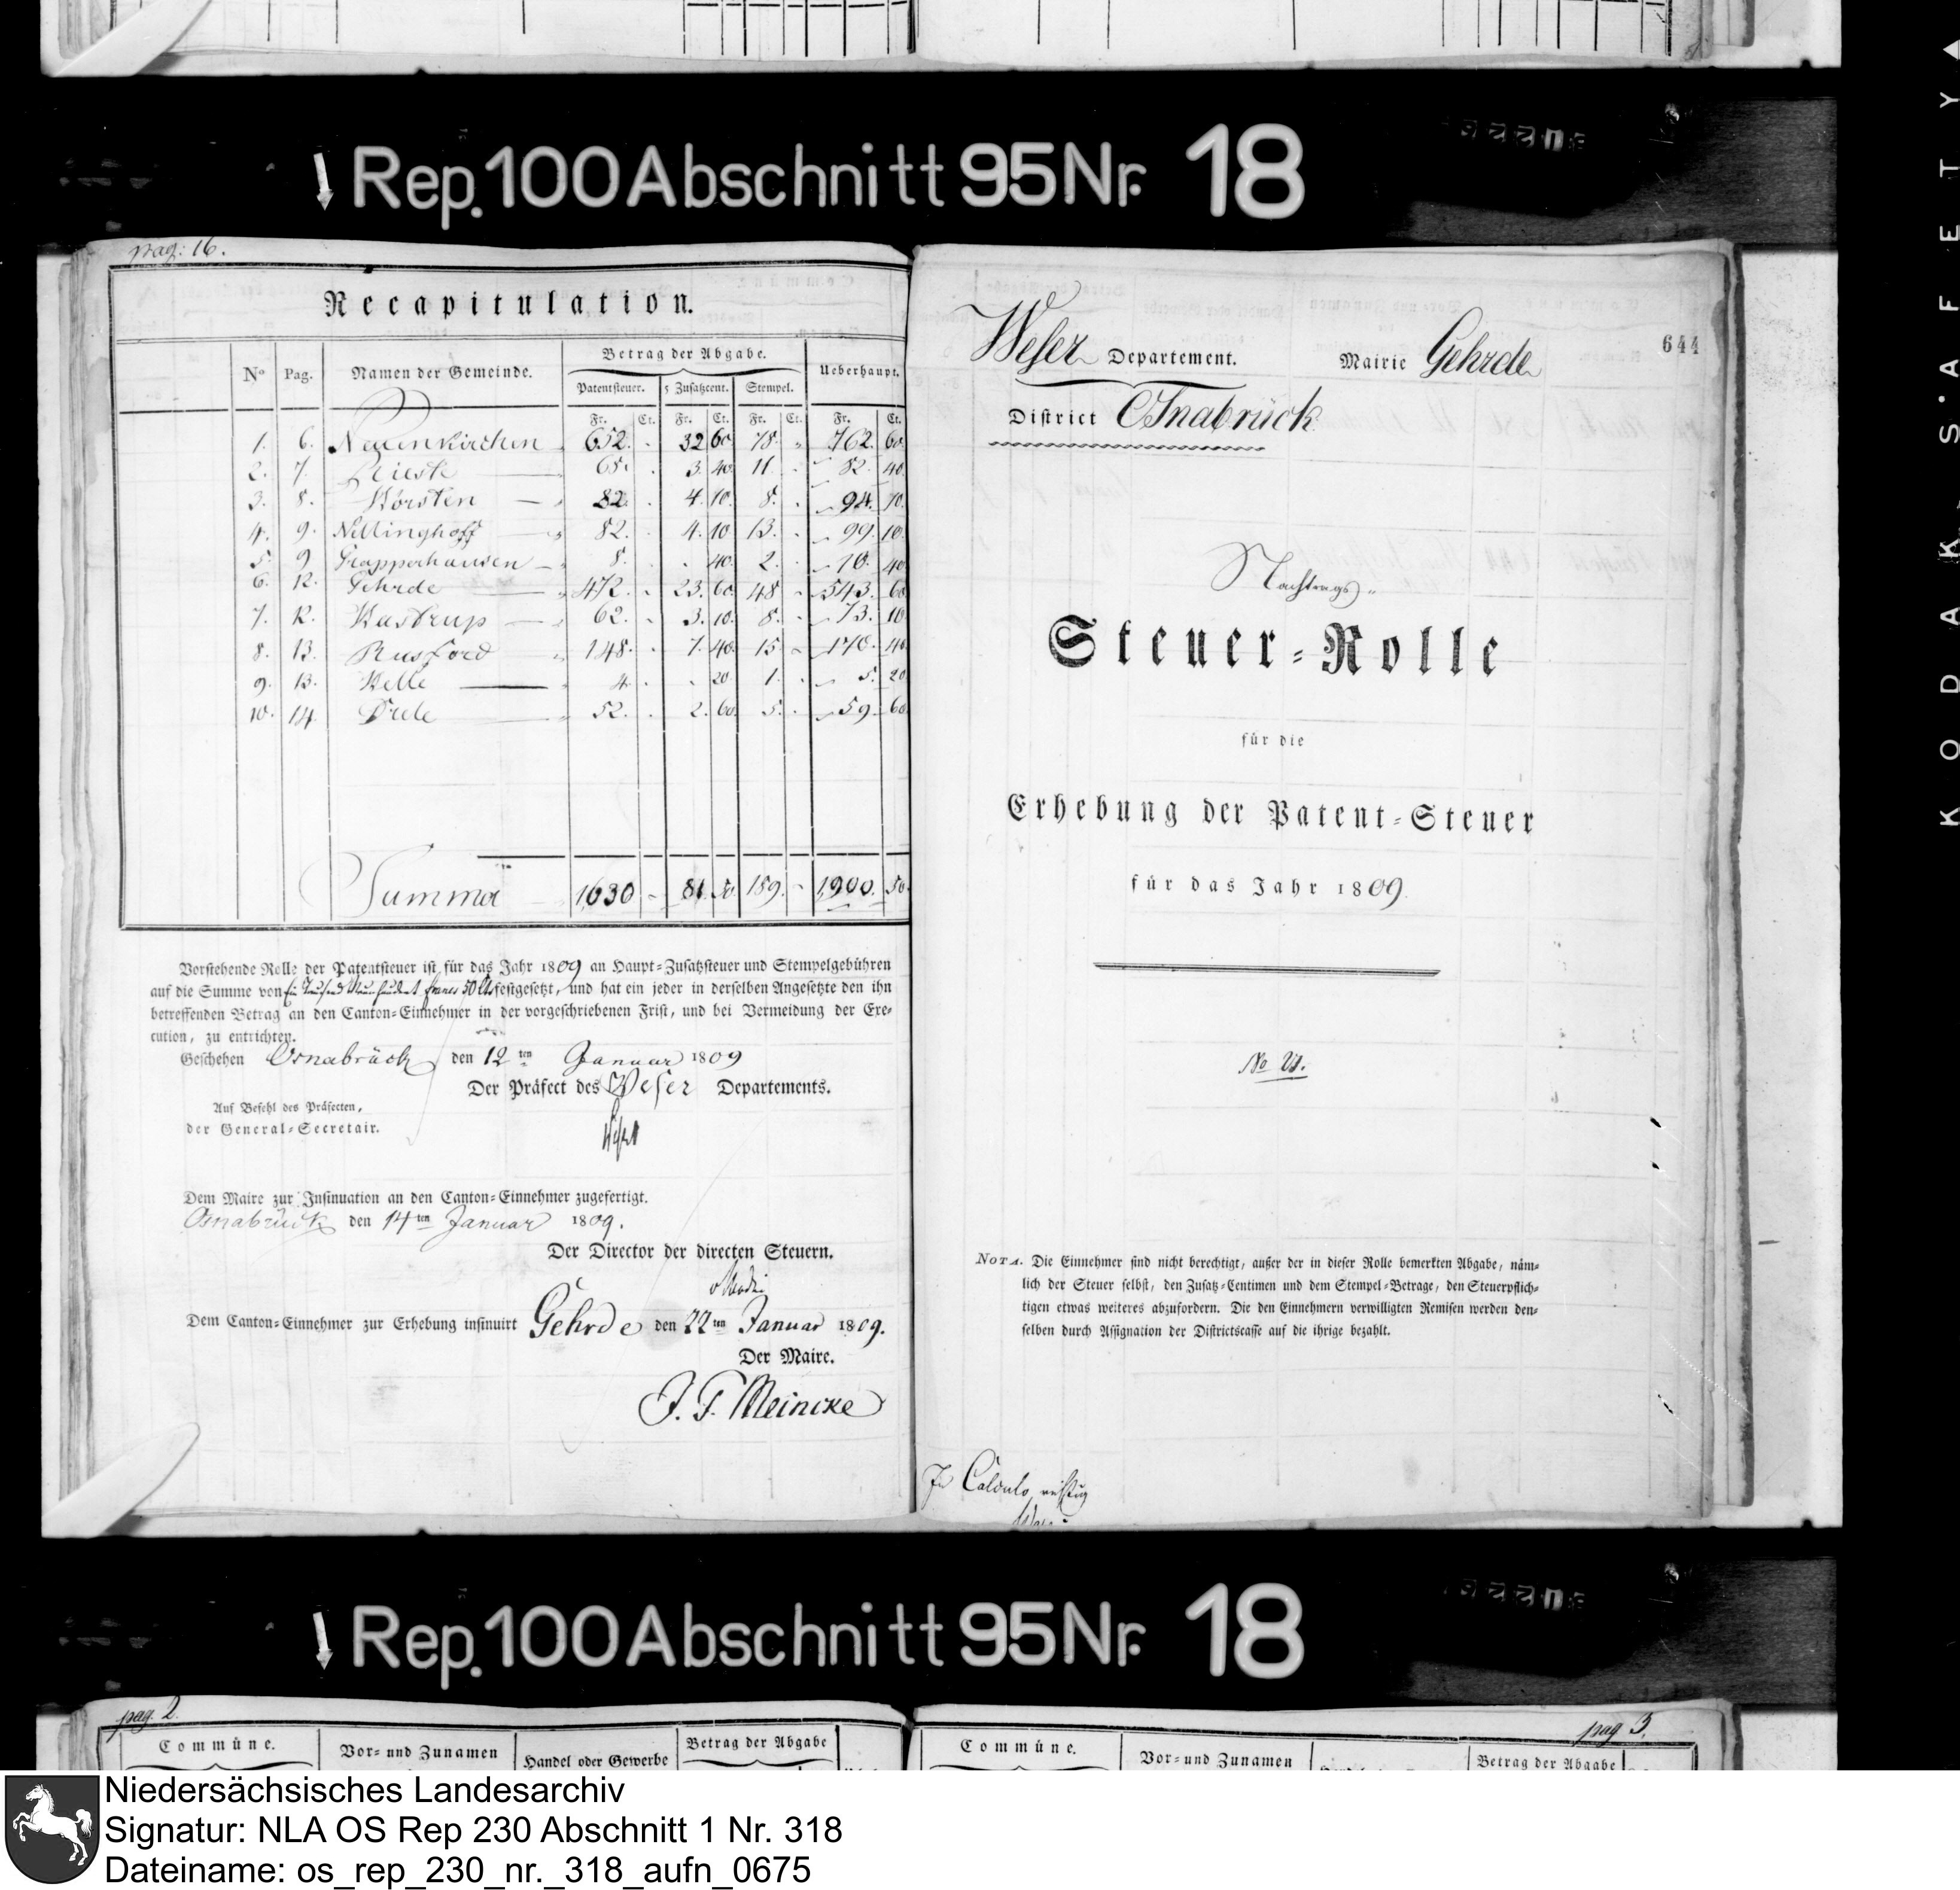 KODAK SAFETY
Rep. 100 Abschnitt 95 Nr. 18
pag: 16.
Recapitulation.
No Pag. Namen der Gemeinde. Betrag der Abgabe. Ueberhaupt.
Patentsteuer. 5 Zusatzcent. Stempel.
Fr. Ct. Fr. Ct. Fr. Ct. Fr. Ct.
1. 6. Neuenkirchen 652. - 32 60 78. " 762. 60
2. 7. Rieste 68. . 3. 40 11. - 82. 40
3. 8. Vörsten 82. . 4. 10. 8. - 94. 10.
4. 9. Nellinghoff 82. . 4. 10 13. - 99. 10.
5. 9 Grapperhausen 8. . . 40. 2. . 10. 40
6. 12. Gehrde 472. - 23. 60 48 - 543. 60
7. 12. Wastrup 62. - 3. 10. 8. - 73. 10
8. 13. Rusford 148. . 7. 40. 15. - 170. 40
9. 13. Helle 4. . . 20 1. . 5. 20
10. 14. Drele 52. . 2. 60. 5. . 59. 60
Summa 1630 - 81. 50 189. - 1900. 50.
Vorstehende Rolle der Patentsteuer ist für das Jahr 1809 an Haupt-Zusatzsteuer und Stempelgebühren
auf die Summe von Ein Tausend Neunhundert francs 50 Cts festgesetzt, und hat ein jeder in derselben Angesetzte den ihn
betreffenden Betrag an den Canton-Einnehmer in der vorgeschriebenen Frist, und bei Vermeidung der Exe-
cution, zu entrichten.
Geschehen Osnabrück den 12 ten Januar 1809
Der Präfect des Weser Departements.
Auf Befehl des Präfecten,
der General-Secretair.
Dem Maire zur Insinuation an den Canton-Einnehmer zugefertigt.
Osnabrück den 14 ten Januar 1809.
Der Director der directen Steuern.
Dem Canton-Einnehmer zur Erhebung insinuirt Gehrde den 22 ten Januar 1809.
Der Maire.
J. F. Meincke
644
Weser Departement. Mairie Gehrde
District Osnabrück
Nachtrags-
Steuer-Rolle
für die
Erhebung der Patent-Steuer
für das Jahr 1809.
NOTA. Die Einnehmer sind nicht berechtigt, außer der in dieser Rolle bemerkten Abgabe, näm-
lich der Steuer selbst, den Zusatz-Centimen und dem Stempel-Betrage, den Steuerpflich-
tigen etwas weiteres abzufordern. Die den Einnehmern verwilligten Remisen werden den-
selben durch Assignation der Districtscasse auf die ihrige bezahlt.
In Calculo richtig
Rep. 100 Abschnitt 95 Nr. 18
pag. 2.
Commüne. Vor- und Zunamen Handel oder Gewerbe Betrag der Abgabe
pag 3.
Commüne. Vor- und Zunamen Betrag der Abgabe
Niedersächsisches Landesarchiv
Signatur: NLA OS Rep 230 Abschnitt 1 Nr. 318
Dateiname: os_rep_230_nr._318_aufn_0675